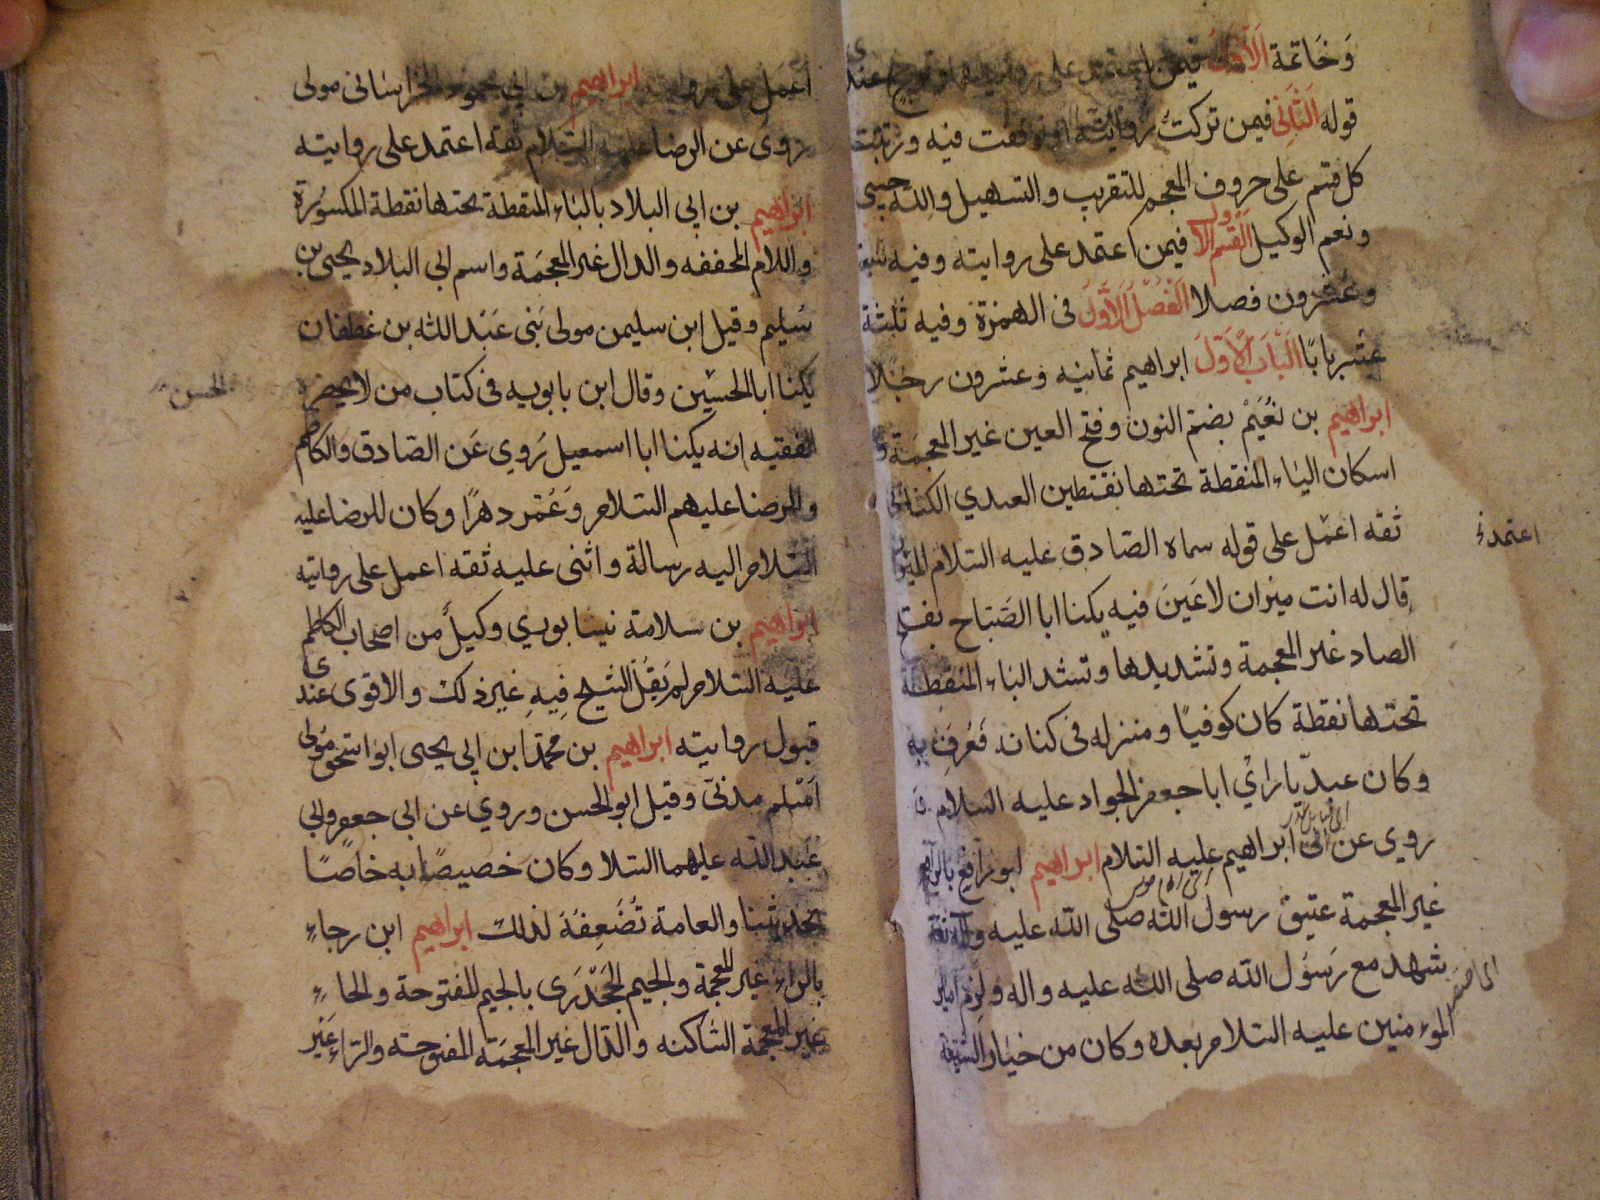 وخاتمة الأول فيمن اعتمد على روايته او ترجح عندي
قوله الثاني فيمن تركت روايته او توقفت فيه ورتبت
كل قسم على حروف المعجم للتقريب والتسهيل والله حسبي
ونعم الوكيل القسم الأول فيمن اعتمد على روايته وفيه
وعشرون فصلا الفصل الأول في الهمزة وفيه ثلثة
عشر بابًا الباب الأول ابراهيم ثمانيه وعشرون رجلا
ابراهيم بن نُعَيْم بضم النون وفتح العين غير المعجمة و
اسكان الياء المنقطة تحتها نقطتين العبدي الكناني
ثقه اعمل على قوله سماه الصادق عليه السلام الميزان
قال له انت ميزان لا عَينَ فيه يكنا ابا الصَّبّاح بفتح
الصاد غير المعجمة وتشديدها وتشد الباء المنقطة
تحتها نقطة كان كوفيًا ومنزله في كنانه فَعُرِفَ به
وكان عبديّا راي ابا جعفر الجواد عليه السلام و
روى عن ابي ابراهيم عليه السلام ابراهيم ابو رافع بالراء
غير المعجمة عتيق رسول الله صلى الله عليه وآله ثقة
شهد مع رَسُول الله صلى الله عليه واله ولزم امير
المومنين عليه السلام بعده وكان من خيار الشيعة
اعتمدُ
اعمل على روايته ابراهيم بن ابي محمود الخراساني مولى
روى عن الرضا عليه السلام ثقة اعتمد على روايته
ابراهيم بن ابي البلاد بالباء المنقطة تحتها نقطة المكسُورة
واللام المخففه والدال غير المعجمَة واسم ابي البلاد يحيى بن
سُليم وقيل ابن سليمن مولى بَني عَبْد الله بن غطفان
يكنا ابا الحسين وقال ابن بابويه في كتاب من لا يحضره
الفقيه انه يكنا ابا اسمعيل رَوى عَن الصّادق والكاظم
والرضا عليهم السلام وعُمّر دهرًا وكان للرضا عليه
السلام اليه رسالة واثنى عليه ثقه اعمل على روايته
ابراهيم بن سلامة نيسابوري وكيلٌ من اصحاب الكاظم
عليه السلام لم يَقُل الشيخ فِيهِ غير ذلك والاقوى عندي
قبول روايته ابراهيم بن محمّد ابن ابي يحيى ابو اسحق مولى
اسْلم مدنيّ وقيل ابو الحسن وروي عن ابي جعفر وابي
عَبد الله عليهما السلا وكان خصيصًا به خاصًا
بحديثنا والعامة تُضَعِفُهُ لذلك ابراهيم ابن رجاء
بالراء غير المعجمة والجيم الجَحْدَرَى بالجيم المفتوحة والحاء
غير المعجمة الساكنه والدال غير المعجمَة المفتوحه والراء غير
الحسن